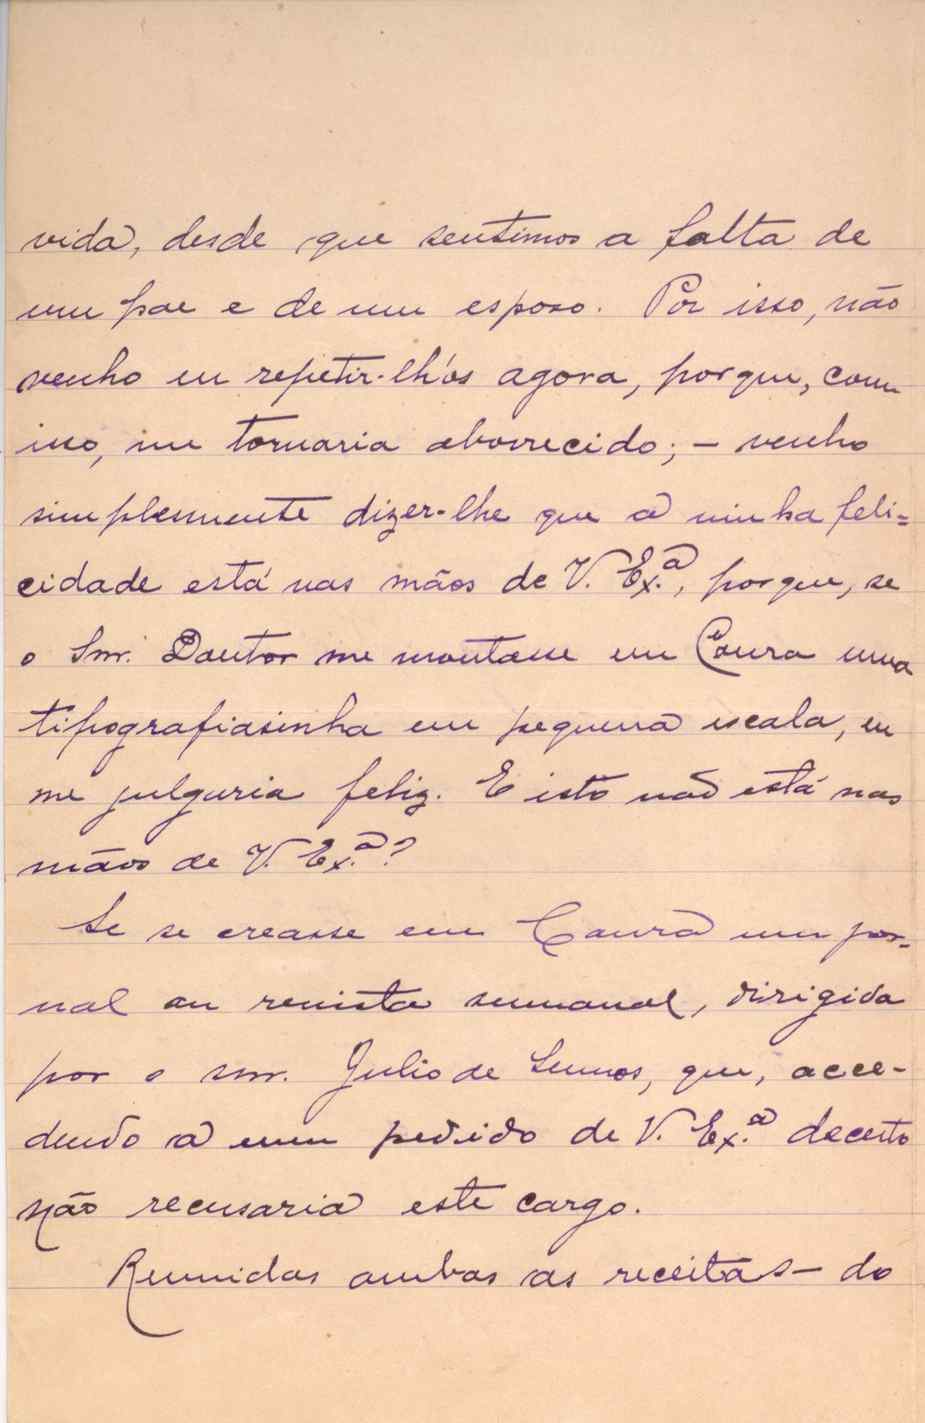 vida, desde que sentimos a falta de
um pae e de um esposo. Por isso, não
venho eu repetir-lh'os agora, porque, com
isso, me tornaria aborrecido; – venho
simplesmente dizer-lhe que a minha feli=
cidade está nas mãos de V. Ex.ª, porque, se
o Snr. Doutor me montasse em Coura uma
tipografiasinha em pequena escala, eu
me julguria feliz. E isto não está nas
mãos de V. Ex.ª?
Se se creasse em Coura um jor-
nal ou revista semanal, dirigida
por o snr. Julio de Lemos, que, acce-
dendo a um pedido de V. Ex.ª decerto
não recusaria este cargo.
Reunidas ambas as receitas – do